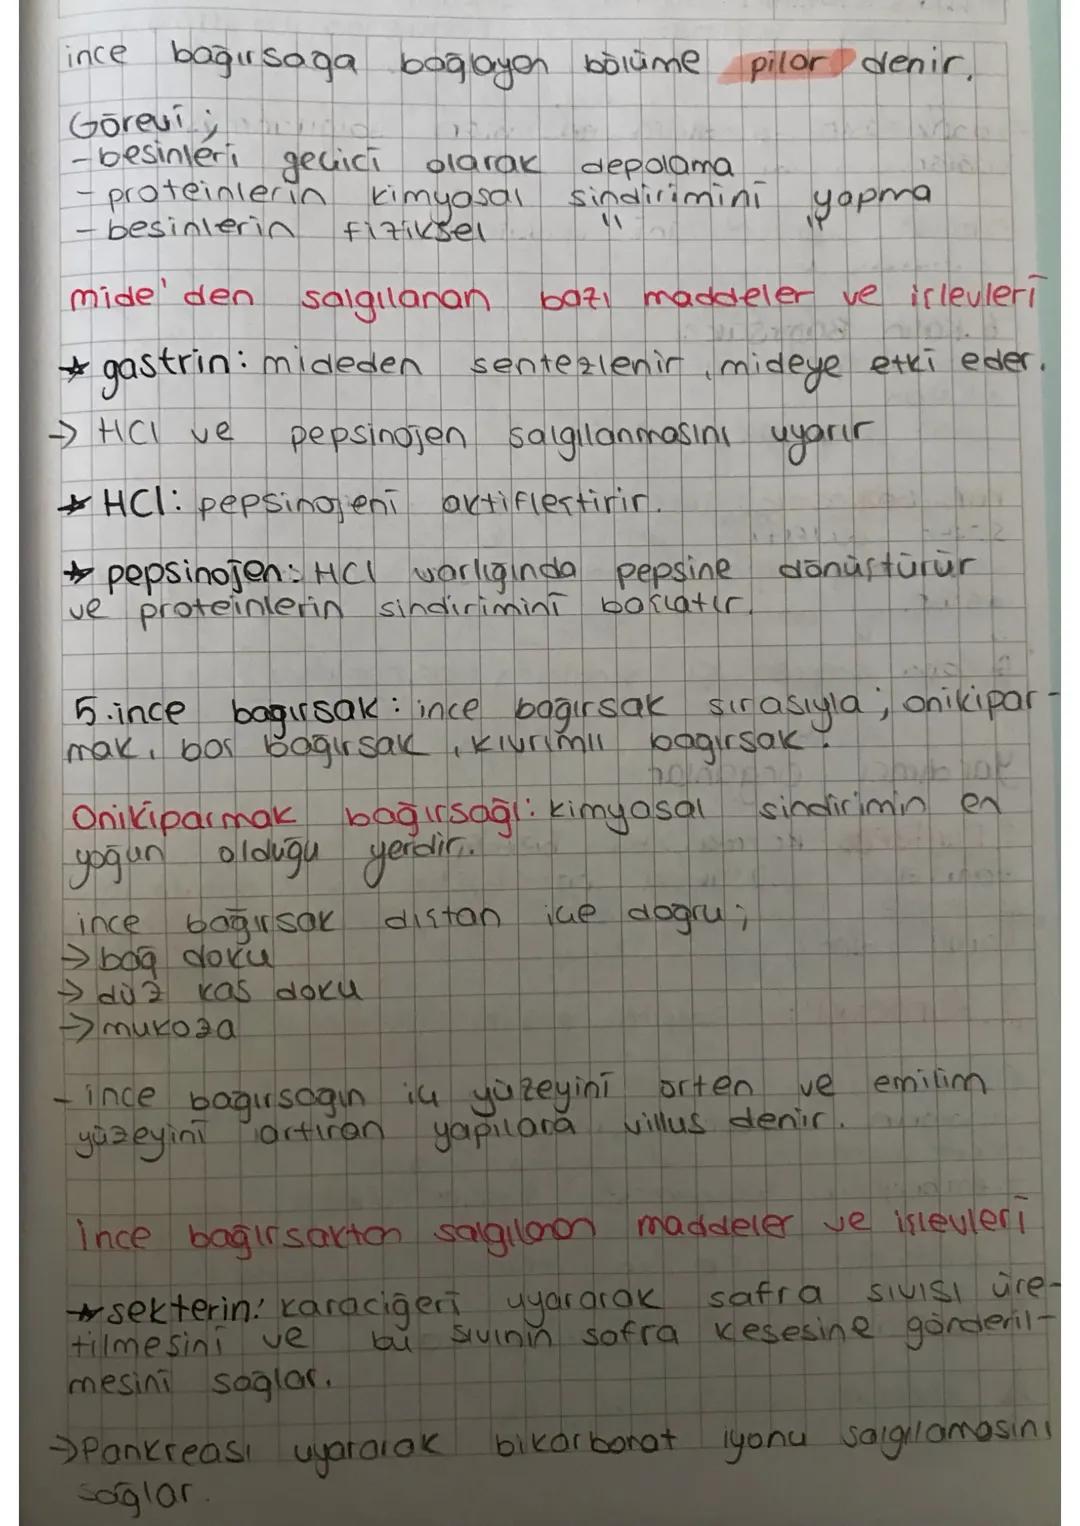 ince bağırsağa bağlayan bölüme pilor denir.
Görevi;
-besinleri geçici olarak depolama
- proteinlerin kimyasal sindirimini yapma
- besinlerin fiziksel " "
mide'den salgılanan bazı maddeler ve işlevleri
☆ gastrin: mideden sentezlenir, mideye etki eder.
→ HCl ve pepsinojen salgılanmasını uyarır
☆ HCl: pepsinojeni aktifleştirir.
☆ pepsinojen: HCl varlığında pepsine dönüştürür
ve proteinlerin sindirimini başlatır.
5.ince bağırsak: ince bağırsak sırasıyla; onikipar-
mak, boş bağırsak, kıvrımlı bağırsak.
Onikiparmak bağırsağı: kimyasal sindirimin en
yoğun olduğu yerdir.
ince bağırsak dıştan içe doğru;
→ bağ doku
→ düz kas doku
→ mukoza
- ince bağırsağın iç yüzeyini örten ve emilim
yüzeyini artıran yapılara villus denir.
ince bağırsaktan salgılanan maddeler ve işlevleri
☆ sekterin: karaciğeri uyararak safra sıvısı üre-
tilmesini ve bu sıvının safra kesesine gönderil-
mesini sağlar.
→ Pankreası uyararak bikarbonat iyonu salgılamasını
sağlar.